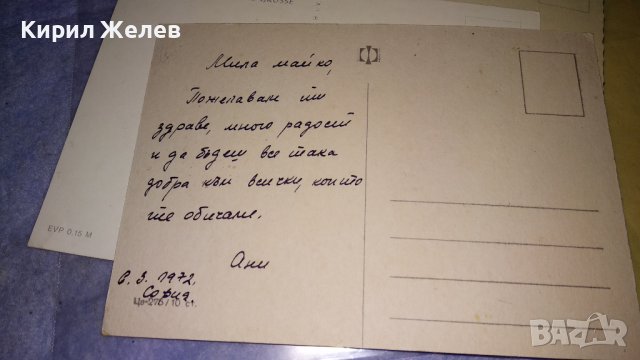 Кирил Желев
Мила майко,
Пожелавам ти
здраве, много радост
и да бъдеш все така
добра към всички, които
те обичаме.
Ани
6.3.1972.
София
10 ст.
EVP 0,15 M
BAZAR